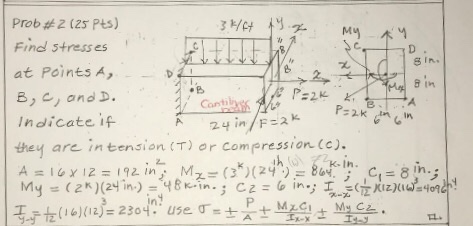 Prob #2 (25 Pts)
Find stresses
at Points A,
B, C, and D.
Indicate if
they are in tension (T) or compression (C).
3 k/ft
y
z
C
D
B
A
8"
8"
6"
6"
x
P=2k
Cantilever
beam
24 in
F=2k
My
y
C
D
8 in.
x
Mx
8 in.
B
A
P=2k
6 in
6 in
A = 16 x 12 = 192 in², Mx = (3k)(24") = 864 k-in.; C1 = 8 in.;
My = (2k)(24 in.) = 48 k-in.; C2 = 6 in.; Ix-x = (1/12)(12)(16)³ = 4096 in⁴
Iy-y = 1/12 (16)(12)³ = 2304 in⁴. Use σ = ± P/A ± MxC1/Ix-x ± MyC2/Iy-y.